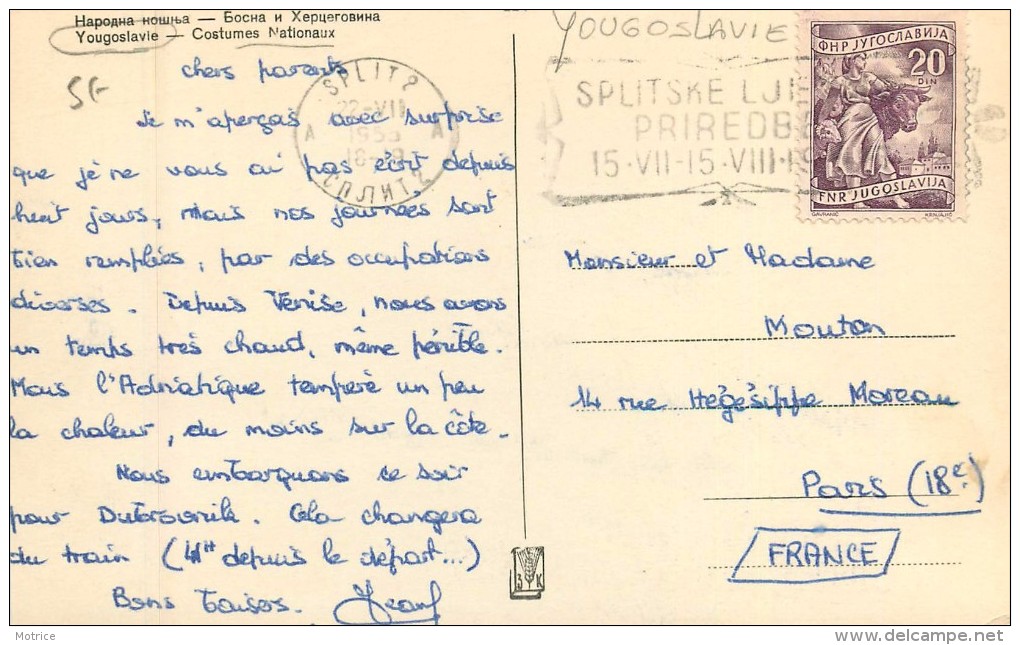 Народна ношња — Босна и Херцеговина
Yougoslavie — Costumes Nationaux
YOUGOSLAVIE
5F
SPLIT 2
22-VII
1955
18-19
A A
СПЛИТ 2
SPLITSKE LJ
PRIREDB
15·VII-15·VIII·19
ФНР ЈУГОСЛАВИЈА
20
DIN
FNR JUGOSLAVIJA
GAVRANIĆ KRNJAJIĆ
chers parents
Je m'aperçois avec surprise
que je ne vous ai pas écrit depuis
huit jours, mais nos journées sont
bien remplies, par des occupations
diverses. Depuis Venise, nous avons
un temps très chaud, même pénible.
Mais l'Adriatique tempère un peu
la chaleur, du moins sur la côte.
Nous embarquons ce soir
pour Dubrovnik. Cela changera
du train (41H depuis le départ...)
Bons baisers.
Monsieur et Madame
Mouton
14 rue Hégésippe Moreau
Paris (18e)
FRANCE
З К
Motrice
delcampe.net